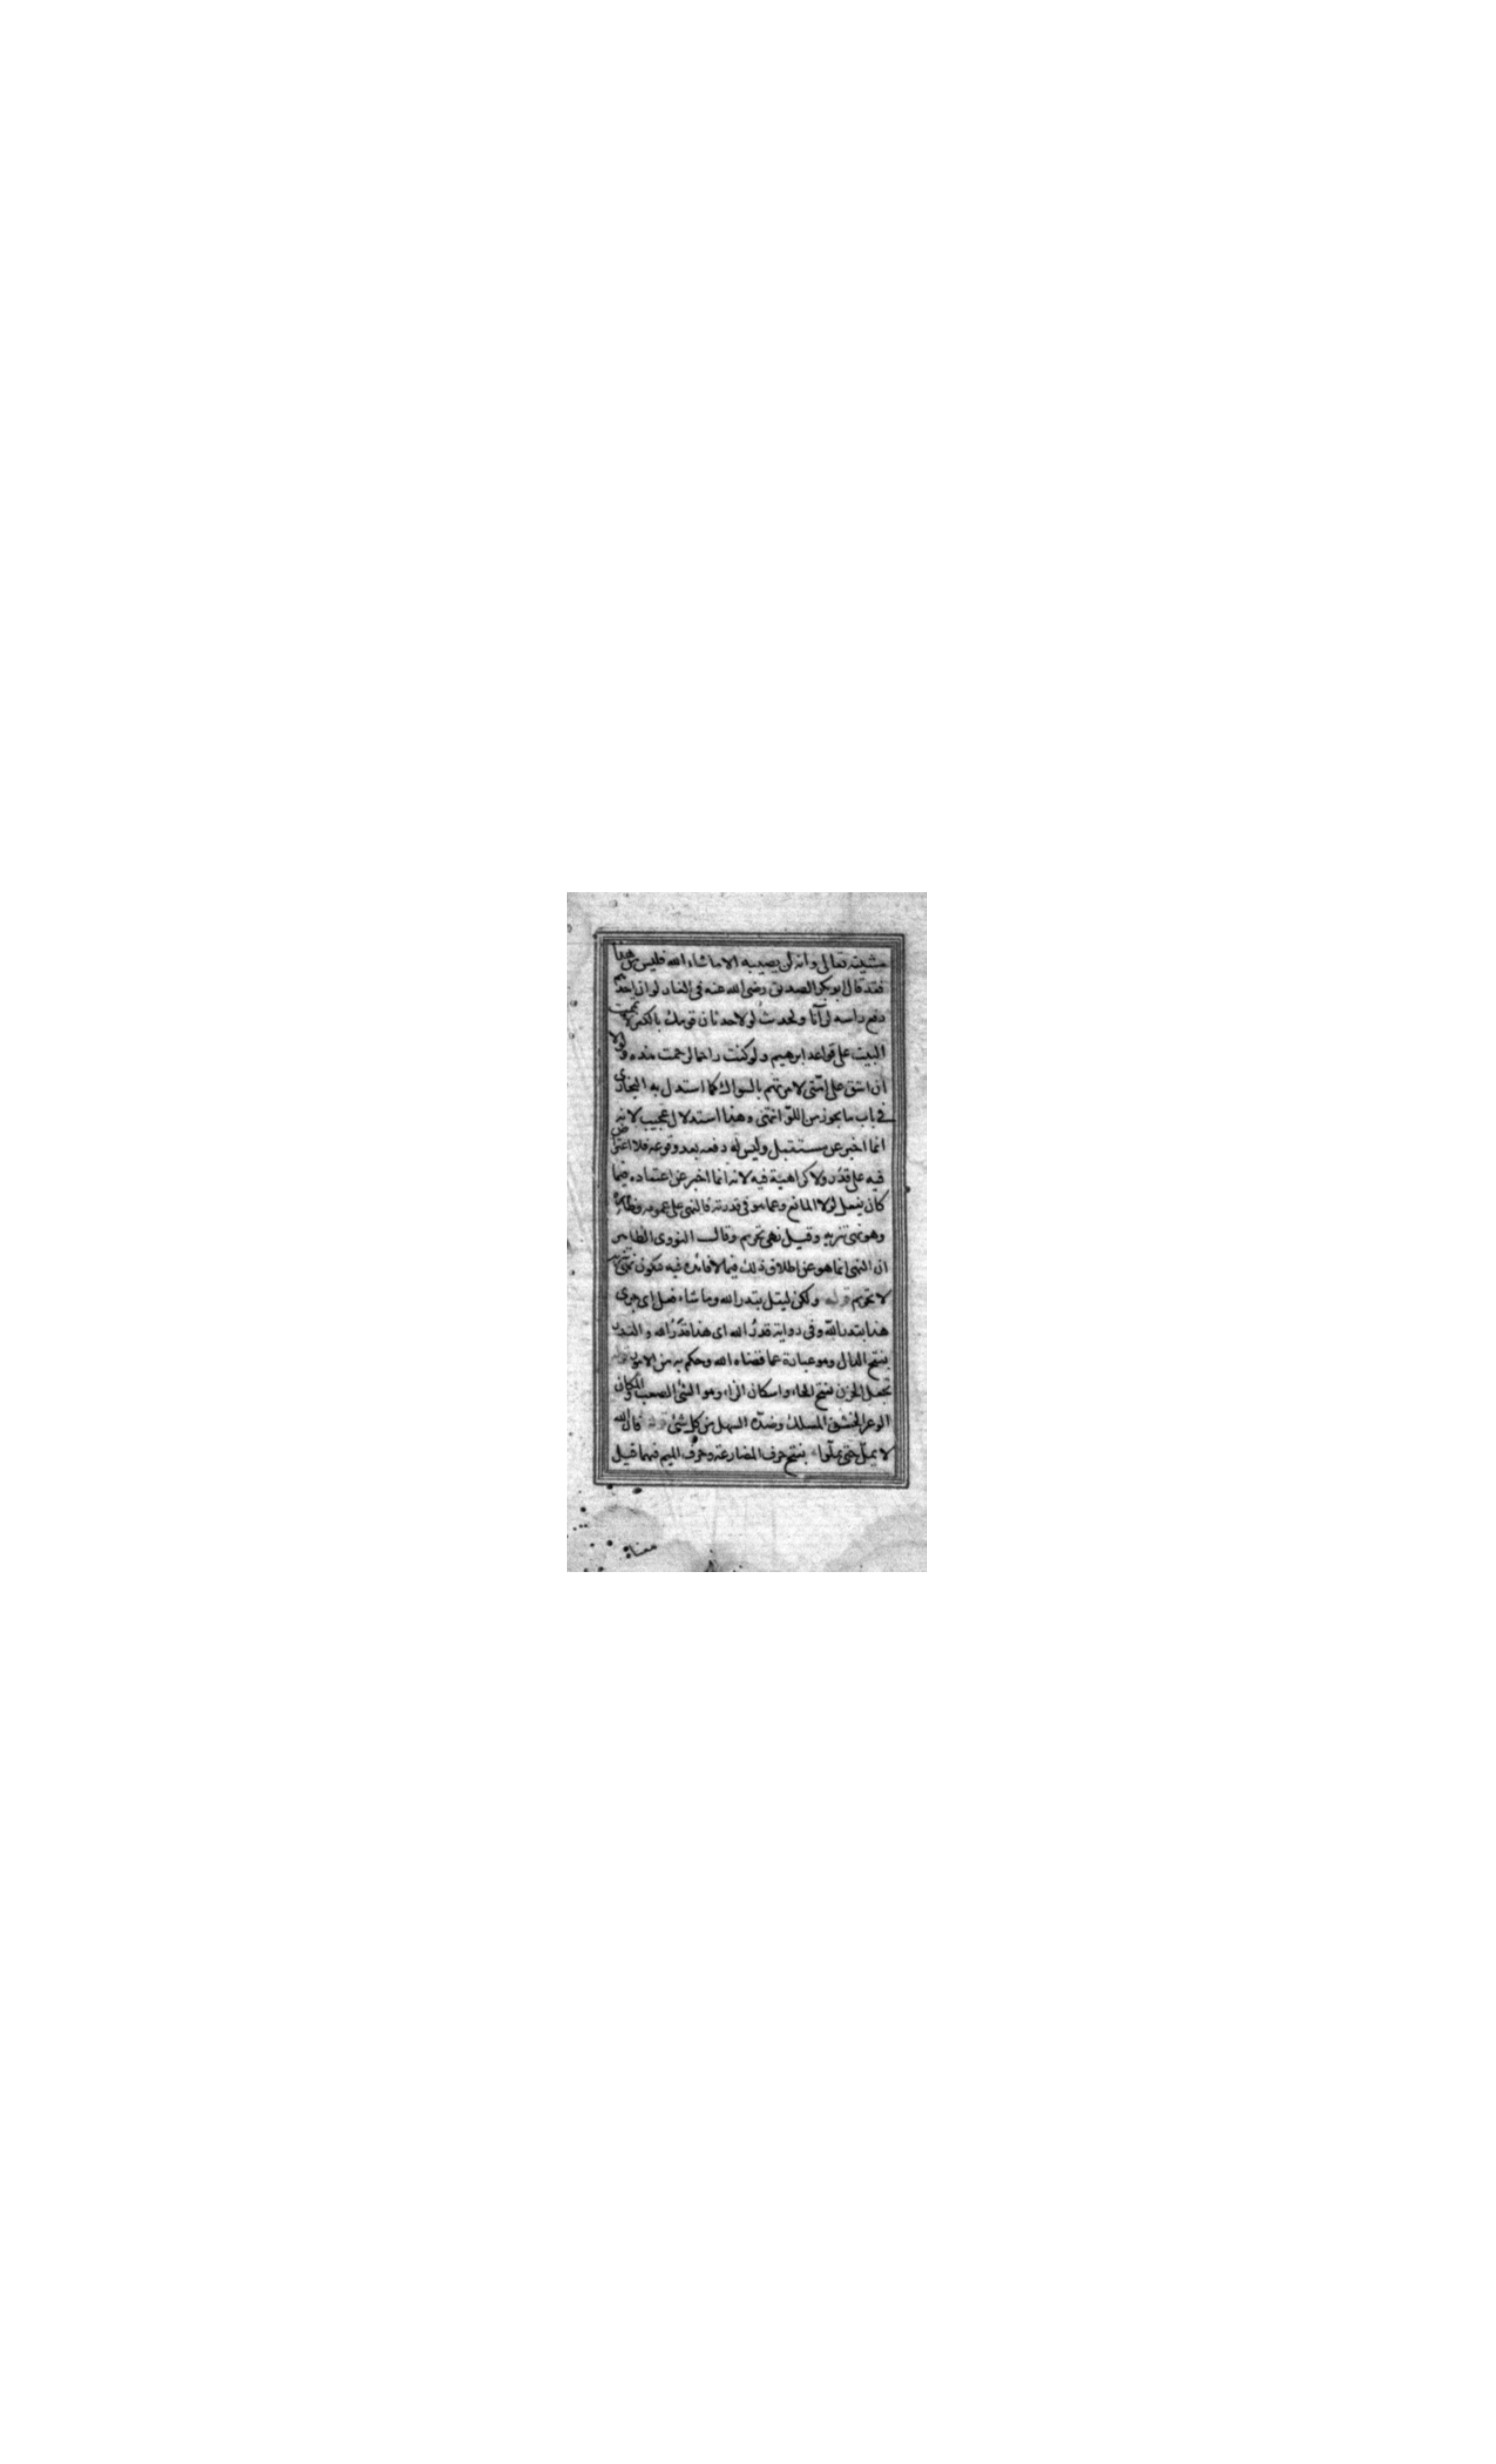 مشيته تعالى وانه لن يصيبه الا ما شاء الله فليس من هذا
فقد قال ابو بكر الصديق رضى الله عنه فى الغار لو ان احدهم
رفع راسه لرآنا ولحديث لولا حدثان قومك بالكفر لاتممت
البيت على قواعد ابرهيم ولو كنت راجما لرجمت هذه ولولا
ان اشق على امتى لامرتهم بالسواك كما استدل به البخارى
فى باب ما يجوز من اللو انتهى وهذا استدلال عجيب لانه
انما اخبر عن مستقبل وليس له دفعه بعد وقوعه فلا اعتراض
فيه على قدر ولا كراهية فيه لانه انما اخبر عن اعتماده فيما
كان يفعل لولا المانع وعما هو فى قدرته فالنهى على عمومه وظاهره
وهو نهى تنزيه وقيل نهى تحريم وقال النووى الظاهر
ان النهى انما هو عن اطلاق ذلك فيما لا فائدة فيه فيكون نهى تنزيه
لا تحريم قوله ولكن ليقل بقدر الله وما شاء فعل اى جرى
هذا بقدر الله وفى رواية قدر الله اى هذا قدر الله والقدر
بفتح الدال وهو عبارة عما قضاه الله وحكم به من الامور قوله
تجعل الحزن بفتح الحاء واسكان الزاء وهو الشئ الصعب والمكان
الوعر الخشن المسلك وضده السهل من كل شئ قوله فان الله
لا يمل حتى تملوا بفتح حرف المضارعة وحرف الميم فيهما قيل
معناه